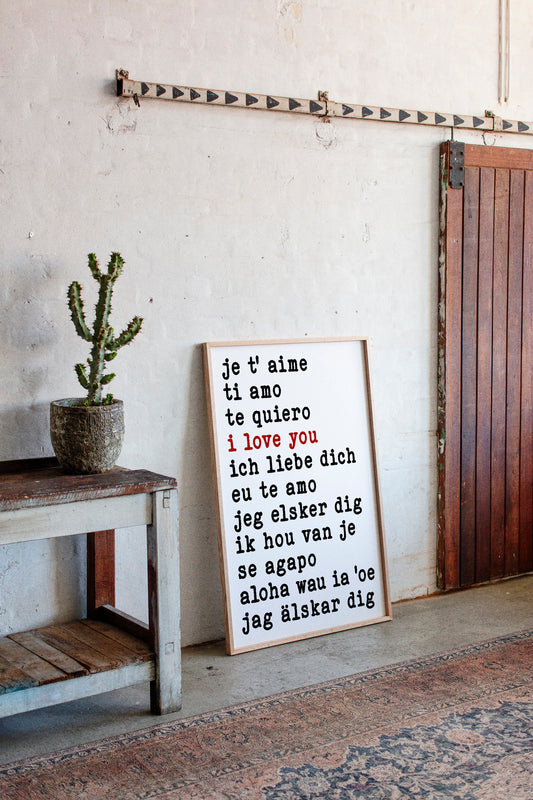 je t' aime
ti amo
te quiero
i love you
ich liebe dich
eu te amo
jeg elsker dig
ik hou van je
se agapo
aloha wau ia 'oe
jag älskar dig